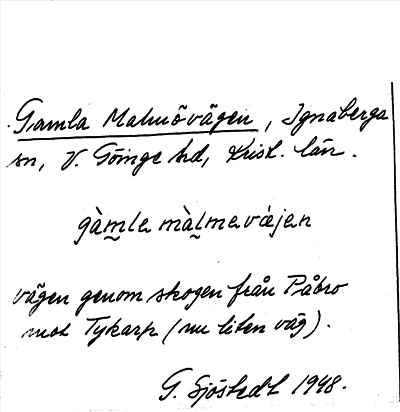 Gamla Malmövägen, Ignaberga
sn, V. Göinge hd, Krist. län.
gàmle màlmeväjen
vägen genom skogen från Påbro
mot Tykarp (nu liten väg).
G. Sjöstedt 1948.